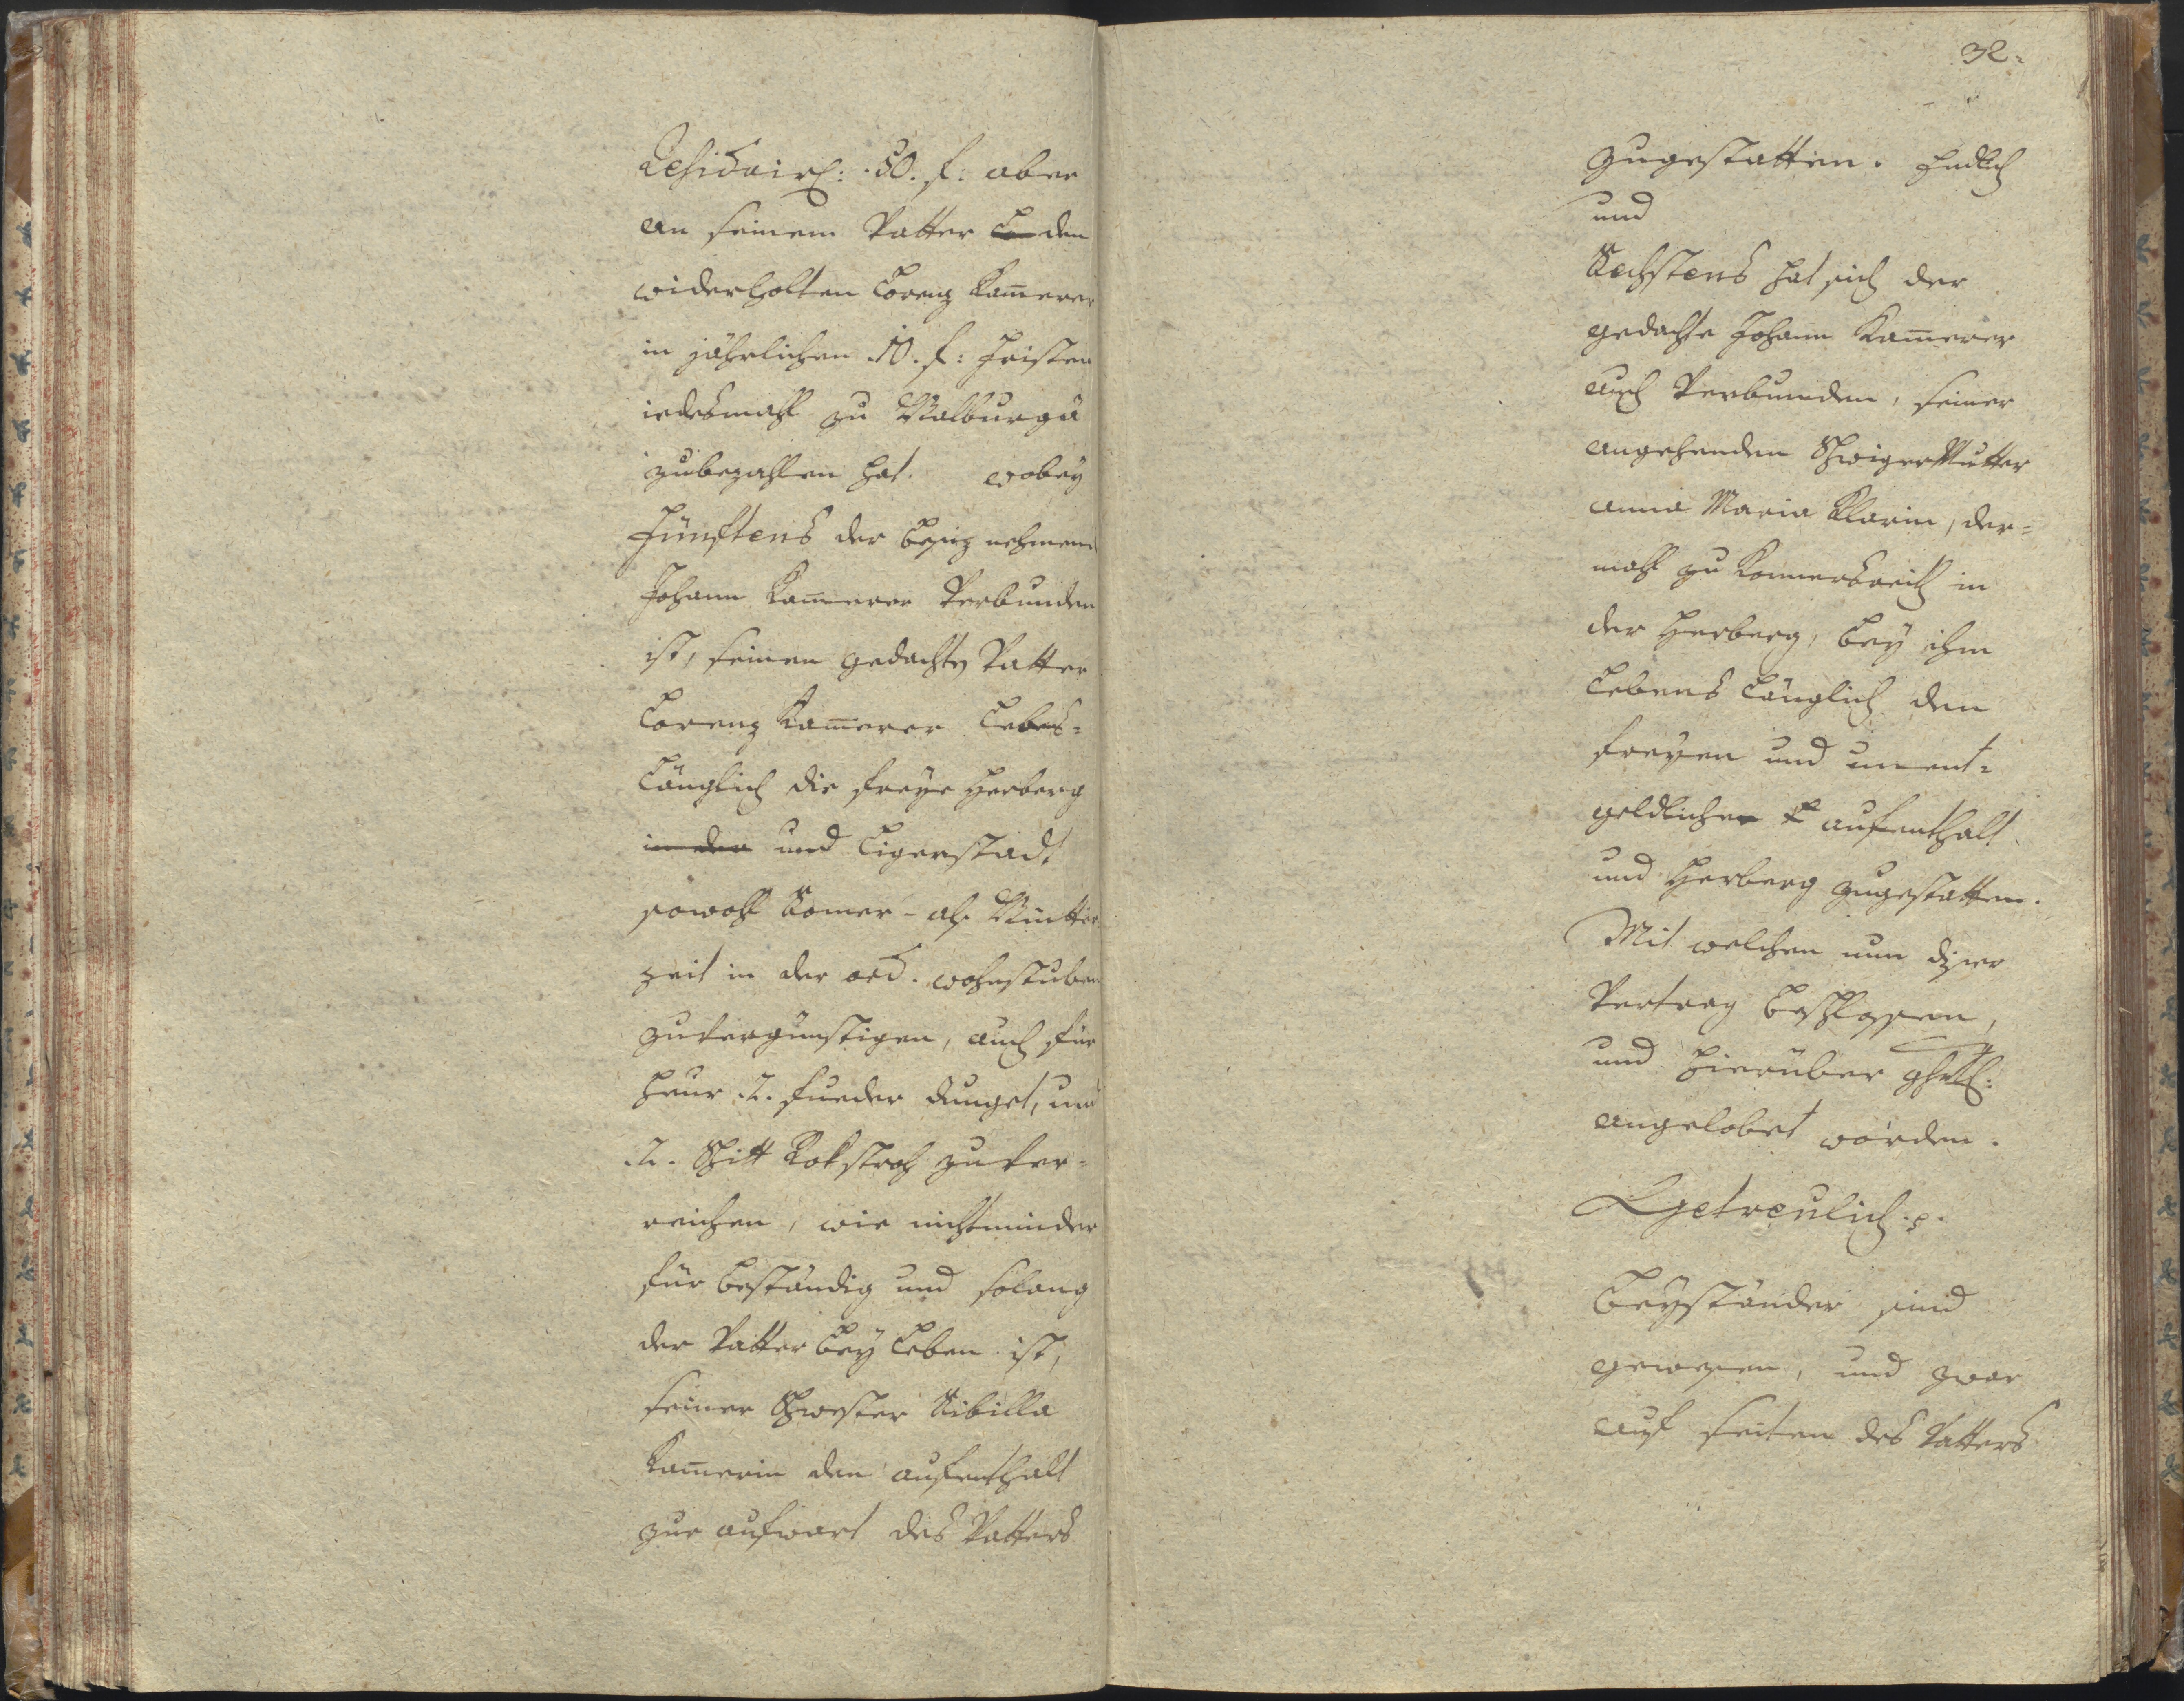 Residuirl: 50. f: aber
an seinem Vatter Lo den
widerholten Lorenz Kam̄erer
in jährlichen .10. f: Fristen
iedesmahl zu Walburga
zubezahlen hat. wobey
Fünftens der Besiz nehmend
Johann Kam̄erer Verbunden
ist, seinen gedachten Vatter
Lorenz Kam̄erer Lebens-
Länglich die freye Herberg
in der und Ligerstadt
sowohl Somer- als Wintter
zeit in der ord. wohnstuben
zuvergünstigen, auch für
heur .2. fueder dunget, und
.2. Schitt Rokstroh zuver-
reichen, wie nicht minder
für beständig und solang
der Vatter bey Leben ist,
seiner Schwester Sibilla
Kam̄erin den aufenthalt
zur aufwart des Vatters
32.
zugestatten. Endlich
und
Sechstens hat sich der
gedachte Johann Kam̄erer
auch Verbunden, seiner
angehenden Schwiger Mutter
anna Maria Klarin, der-
mahl zu Konnersreith in
der Herberg, bey ihm
Lebens Länglich den
freyen und unent-
geldlichen aufenthalt
und Herberg zugestatten.
Mit welchen nun diser
Vertrag beschlossen,
und hierüber ghrtl:
angelobet worden.
Getreulich .p.
Beyständer sind
gewesen, und zwar
auf seiten des Vatters